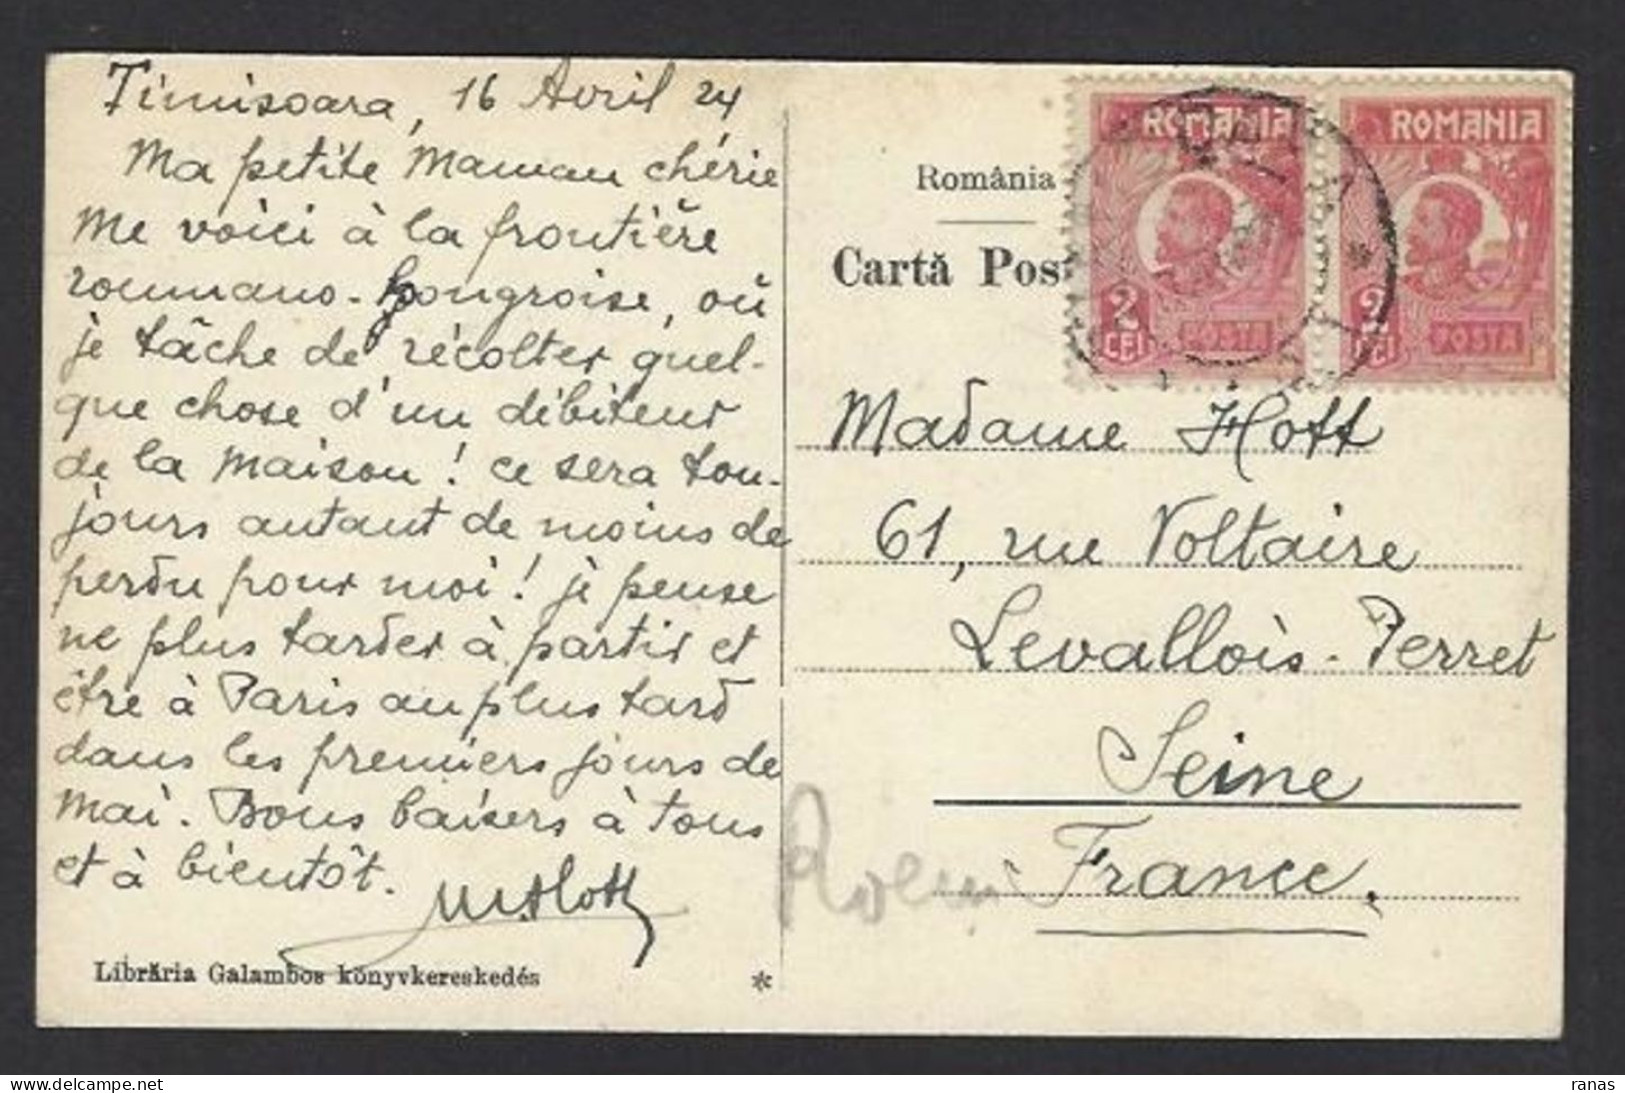 Timisoara, 16 Avril 24
Ma petite Maman chérie
Me voici à la frontière
roumano-hongroise, où
je tâche de récolter quel-
que chose d'un débiteur
de la maison! ce sera tou-
jours autant de moins de
perdu pour moi! je pense
ne plus tarder à partir et
être à Paris au plus tard
dans les premiers jours de
Mai. Bons baisers à tous
et à bientôt.
Librăria Galambos könyvkereskedés
*
România
Cartă Pos
ROMANIA
2
LEI
POSTA
ROMANIA
2
LEI
POSTA
Madame Hott
61, rue Voltaire
Levallois-Perret
Seine
France.
ranas